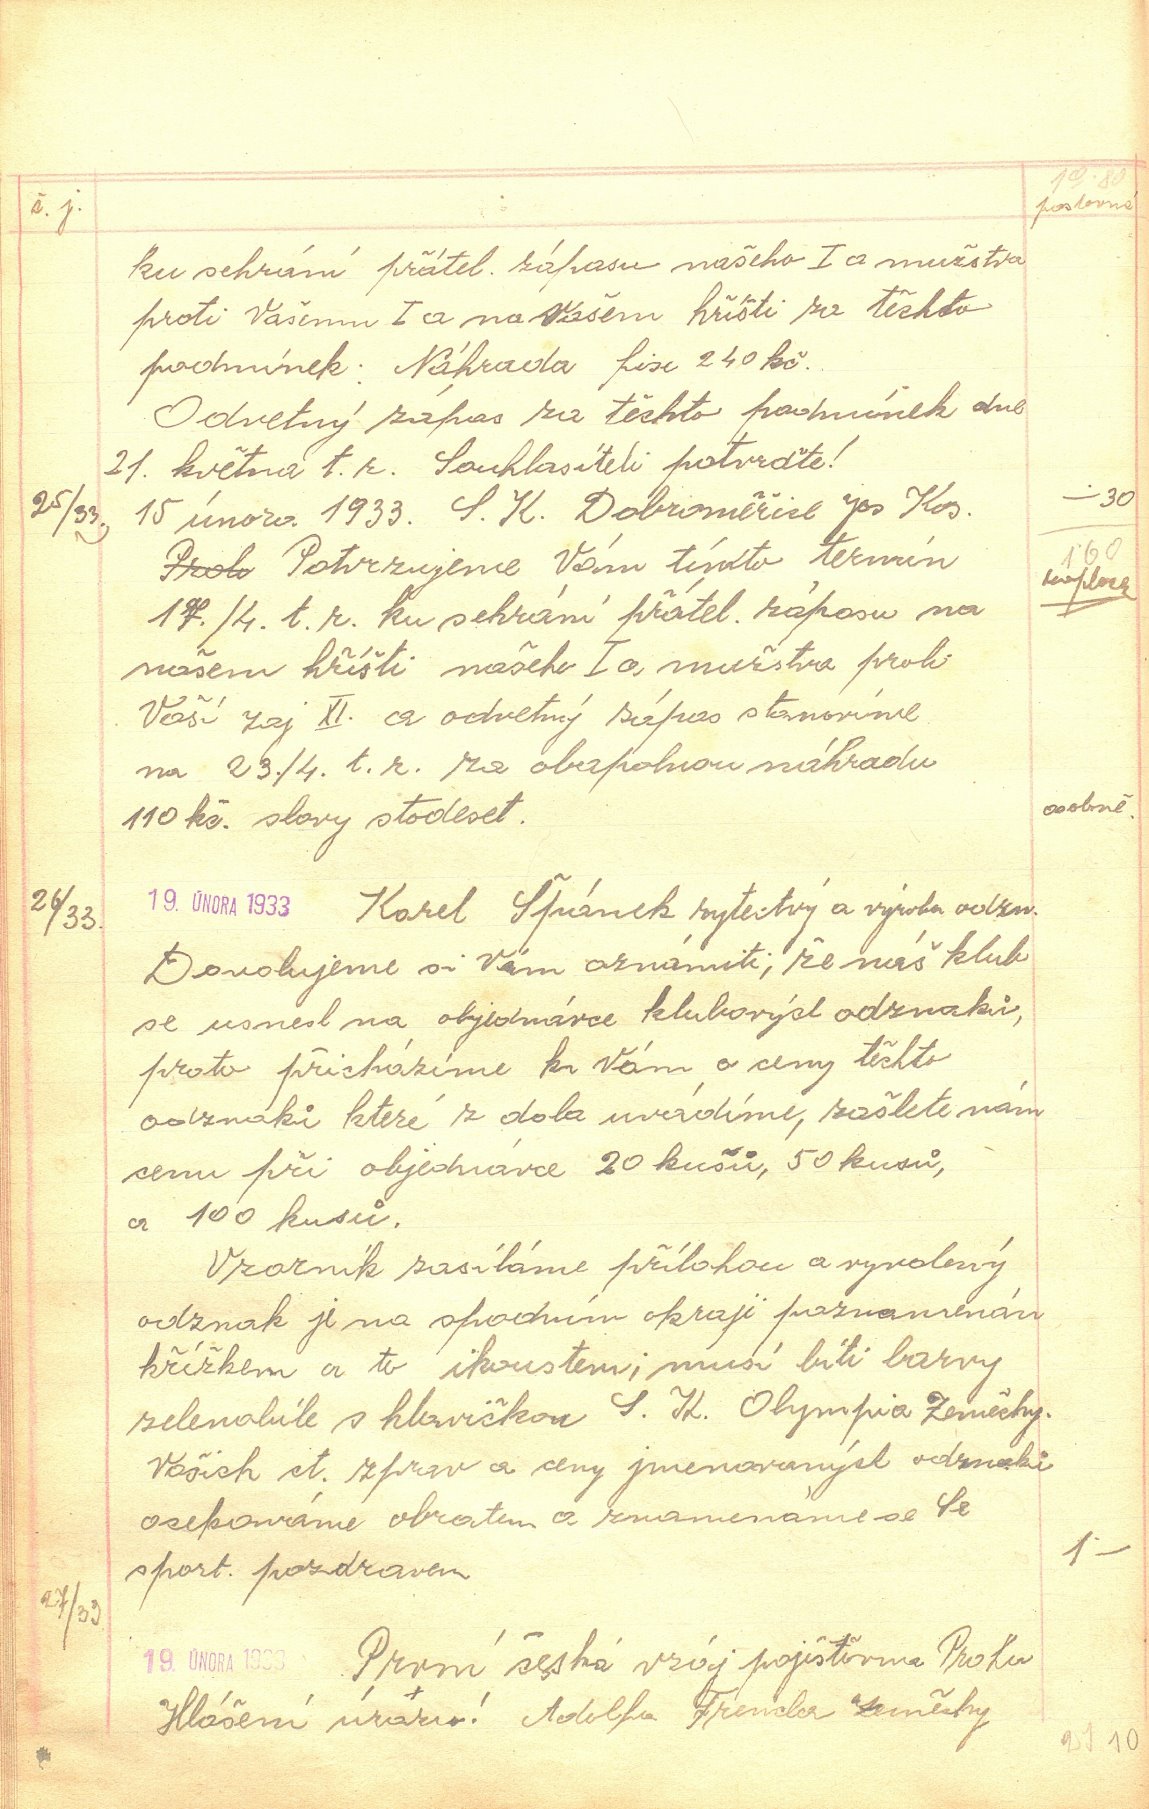 19·80
č. j.
poštovné
ku sehrání přátel. zápasu našeho I a mužstva
proti Vašemu I a na Vašem hřišti za těchto
podmínek: Náhrada fix 240 kč.
Odvetný zápas za těchto podmínek dne
21. května t. r. Souhlasíteli potvrďte!
25/33. 15 února 1933. S. K. Dobroměřice p Kos. —·30
Proto Potvrzujeme Vám tímto termín 160
17./4. t. r. ku sehrání přátel. zápasu na
našem hřišti našeho I a mužstva proti
Vaší zaj XI. a odvetný zápas stanovíme
na 23./4. t. r. za obapolnou náhradu
110 kč. slovy stodeset. osobně.
26/33. 19. ÚNORA 1933 Karel Špánek rytectvý a výroba odzn.
Dovolujeme si Vám oznámiti, že náš klub
se usnesl na objednávce klubovýcl odznaků,
proto přicházíme k Vám o ceny těchto
odznaků které z dola uvádíme, zašlete nám
cenu při objednávce 20 kusů, 50 kusů,
a 100 kusů.
Vzorník zasíláme přílohou a vyvolený
odznak je na spodním okraji poznamenán
křížkem a to ikoustem; musí býti barvy
zelenobíle s hlavičkou S. K. Olympia Zeměchy.
Vašich ct. zprav a ceny jmenovanýcl odznaků
očekáváme obratem a znamenáme se Se
sport. pozdravem 1·—
27/33
19. ÚNORA 1933 První česká vzáj pojišťovna Praha
Hlášení úrazu! Adolfa Frencla Zeměchy
21 10